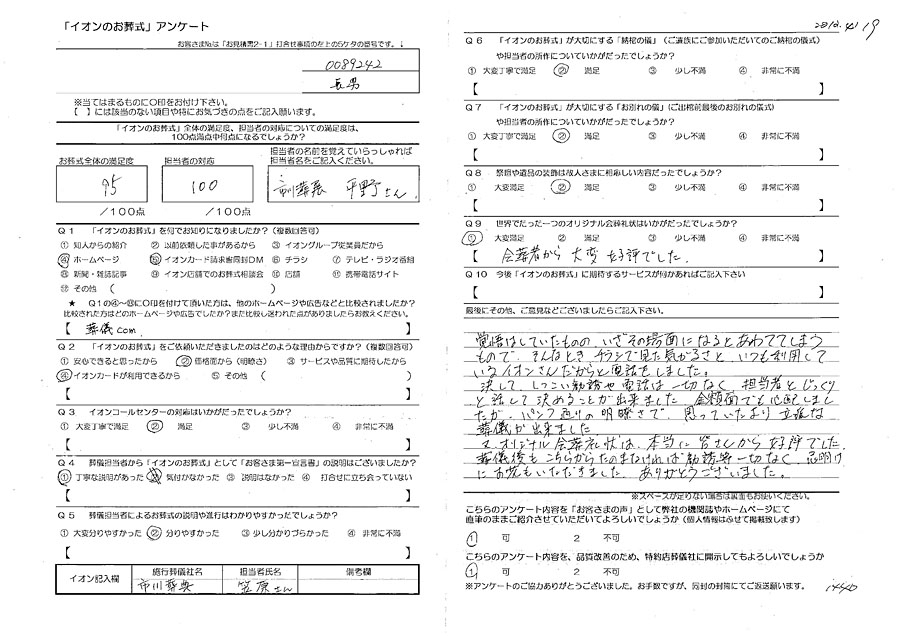 「イオンのお葬式」アンケート
お客さま№は「お見積書2-1」打合せ事項の左上の5ケタの番号です。↓
0089242
長男
※当てはまるものに○印をお付け下さい。
【　】には該当のない項目や特にお気づきの点をご記入願います。
「イオンのお葬式」全体の満足度、担当者の対応についての満足度は、
100点満点中何点になるでしょうか？
お葬式全体の満足度
担当者の対応
担当者の名前を覚えていらっしゃれば
担当者名をご記入ください。
95
100
平野さん
/100点
/100点
Q1 「イオンのお葬式」を何でお知りになりましたか？（複数回答可）
① 知人からの紹介 ② 以前依頼した事があるから ③ イオングループ従業員だから
④ ホームページ ⑤ イオンカード請求書同封DM ⑥ チラシ ⑦ テレビ・ラジオ番組
⑧ 新聞・雑誌記事 ⑨ イオン店舗でのお葬式相談会 ⑩ 店舗 ⑪ 携帯電話サイト
⑫ その他（　）
★ Q1の④～⑫に○印を付けて頂いた方は、他のホームページや広告などと比較されましたか？
比較された方はどのホームページや広告でしたか？また比較し迷われた点がありましたらお教えください。
【 葬儀com 】
Q2 「イオンのお葬式」をご依頼いただきましたのはどのような理由からですか？（複数回答可）
① 安心できると思ったから ② 価格面から（明瞭さ） ③ サービスや品質に期待したから
④ イオンカードが利用できるから ⑤ その他（　）
【　】
Q3 イオンコールセンターの対応はいかがだったでしょうか？
① 大変丁寧で満足 ② 満足 ③ 少し不満 ④ 非常に不満
【　】
Q4 葬儀担当者から「イオンのお葬式」として「お客さま第一宣言書」の説明はございましたか？
① 丁寧な説明があった ② 気付かなかった ③ 説明はなかった ④ 打合せに立ち会っていない
【　】
Q5 葬儀担当者によるお葬式の説明や進行はわかりやすかったでしょうか？
① 大変分りやすかった ② 分りやすかった ③ 少し分りづらかった ④ 非常に不満
【　】
イオン記入欄 施行葬儀社名 担当者氏名 備考欄
市川葬典 笠原さん
19
Q6 「イオンのお葬式」が大切にする「納棺の儀」（ご遺族にご参加いただいてのご納棺の儀式）
や担当者の所作についていかがでしょうか？
① 大変丁寧で満足 ② 満足 ③ 少し不満 ④ 非常に不満
【　】
Q7 「イオンのお葬式」が大切にする「お別れの儀」（ご出棺前最後のお別れの儀式）
や担当者の所作についていかがだったでしょうか？
① 大変丁寧で満足 ② 満足 ③ 少し不満 ④ 非常に不満
【　】
Q8 祭壇や遺品の装飾は故人さまに相応しい内容だったでしょうか？
① 大変満足 ② 満足 ③ 少し不満 ④ 非常に不満
【　】
Q9 世界でたった一つのオリジナル会葬礼状はいかがだったでしょうか？
① 大変満足 ② 満足 ③ 少し不満 ④ 非常に不満
【 会葬者から大変好評でした。 】
Q10 今後「イオンのお葬式」に期待するサービスが何かがあればご記入下さい
【　】
最後にその他、ご意見などございましたらご記入下さい。
覚悟はしていたものの、いざその場面になるとあわててしまう
もので、そんなとき、チラシで見た気がるさと、いつも利用して
いるイオンさんだからと電話をしました。
決して、しつこい勧誘や電話は一切なく、担当者とじっくり
と話して決めることが出来ました。金額面でも心配しまし
たが、パンフ通りの明瞭さで、思っていたより立派な
葬儀が出来ました。
又、オリジナル会葬礼状は、本当に皆さんから好評でした。
葬儀後も、こちらからたのまなければ勧誘等一切なく、忌明け
にお花もいただきました。ありがとうございました。
※スペースが足りない場合は裏面もお使いください。
こちらのアンケート内容を「お客さまの声」として弊社の機関誌やホームページにて
直筆のままご紹介させていただいてよろしいでしょうか（個人情報はふせて掲載致します）
1 可 2 不可
こちらのアンケート内容を、品質改善のため、特約店葬儀社に開示してもよろしいでしょうか
1 可 2 不可
※アンケートのご協力ありがとうございました。お手数ですが、同封の封筒にてご返送願います。